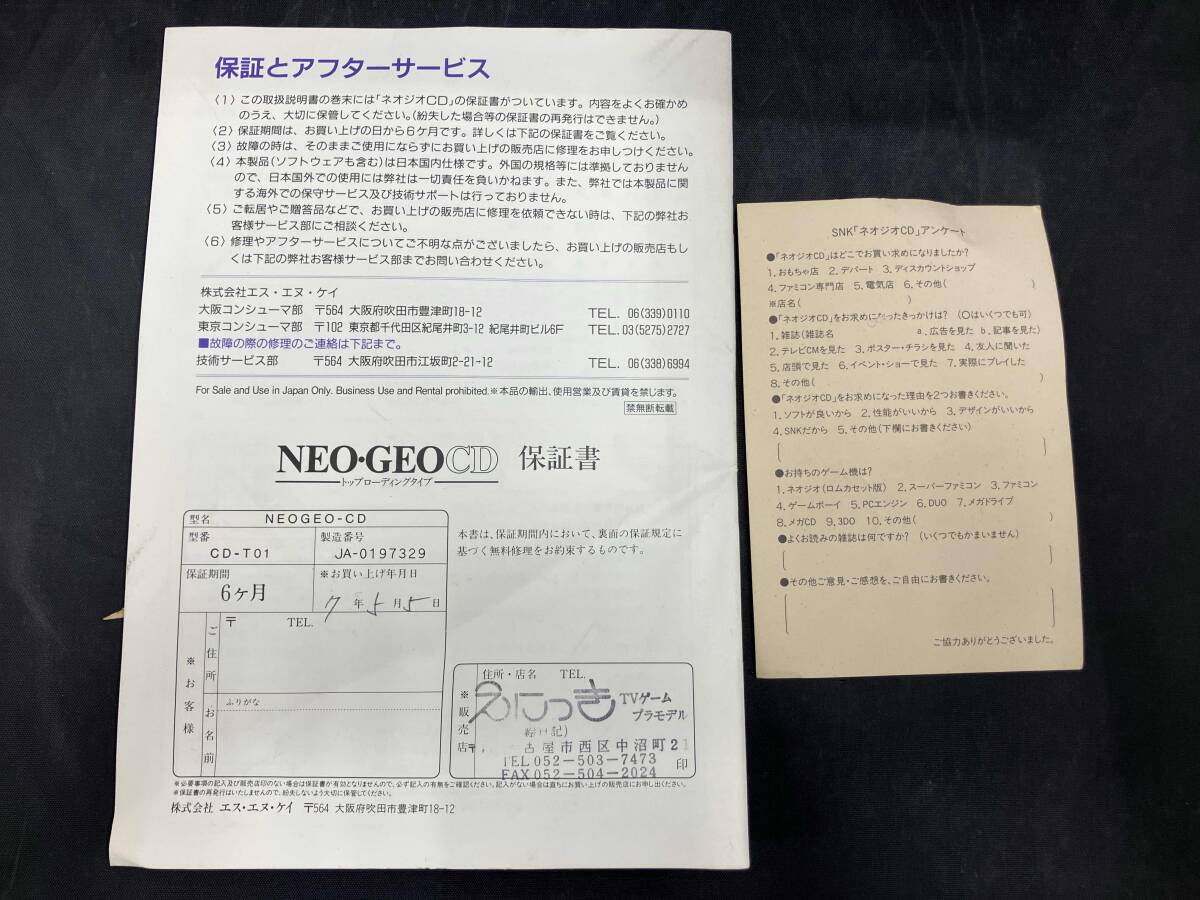 保証とアフターサービス
〈1〉この取扱説明書の巻末には「ネオジオCD」の保証書がついています。内容をよくお確かめ
のうえ、大切に保管してください。(紛失した場合等の保証書の再発行はできません。)
〈2〉保証期間は、お買い上げの日から6ケ月です。詳しくは下記の保証書をご覧ください。
〈3〉故障の時は、そのままご使用にならずにお買い上げの販売店に修理をお申しつけください。
〈4〉本製品(ソフトウェアも含む)は日本国内仕様です。外国の規格等には準拠しておりません
ので、日本国外での使用には弊社は一切責任を負いかねます。また、弊社では本製品に関
する海外での保守サービス及び技術サポートは行っておりません。
〈5〉ご転居やご贈答品などで、お買い上げの販売店に修理を依頼できない時は、下記の弊社お
客様サービス部にご相談ください。
〈6〉修理やアフターサービスについてご不明な点がございましたら、お買い上げの販売店もし
くは下記の弊社お客様サービス部までお問い合わせください。
株式会社エス・エヌ・ケイ
大阪コンシューマ部 〒564 大阪府吹田市豊津町18-12 TEL. 06(339)0110
東京コンシューマ部 〒102 東京都千代田区紀尾井町3-12 紀尾井町ビル6F TEL. 03(5275)2727
■故障の際の修理のご連絡は下記まで。
技術サービス部 〒564 大阪府吹田市江坂町2-21-12 TEL. 06(338)6994
For Sale and Use in Japan Only. Business Use and Rental prohibited.※本品の輸出、使用営業及び賃貸を禁じます。
禁無断転載
NEO・GEO CD 保証書
トップローディングタイプ
型名 NEOGEO-CD
型番 製造番号
CD-T01 JA-0197329
保証期間 ※お買い上げ年月日
6ヶ月 7年5月5日
本書は、保証期間内において、裏面の保証規定に
基づく無料修理をお約束するものです。
※お客様
ご住所
〒 TEL.
お名前
ふりがな
※販売店
住所・店名 TEL.
えにっき TVゲーム
プラモデル
絵日記)
〒 古屋市西区中沼町21
TEL052-503-7473
FAX052-504-2024
印
※必要事項の記入及び販売店印のない場合は保証書が有効となりませんので、必ず記入の有無をご確認ください。記入がない場合は直ちにお買い上げの販売店にお申し出ください。
※保証書の再発行はいたしませんので、紛失しないよう大切に保管してください。
株式会社 エス・エヌ・ケイ 〒564 大阪府吹田市豊津町18-12
SNK「ネオジオCD」アンケート
●「ネオジオCD」はどこでお買い求めになりましたか?
1.おもちゃ店 2.デパート 3.ディスカウントショップ
4.ファミコン専門店 5.電気店 6.その他( )
※店名( )
●「ネオジオCD」をお求めになったきっかけは? (○はいくつでも可)
1.雑誌(雑誌名 a.広告を見た b.記事を見た)
2.テレビCMを見た 3.ポスター・チラシを見た 4.友人に聞いた
5.店頭で見た 6.イベント・ショーで見た 7.実際にプレイした
8.その他( )
●「ネオジオCD」をお求めになった理由を2つお書きください。
1.ソフトが良いから 2.性能がいいから 3.デザインがいいから
4.SNKだから 5.その他(下欄にお書きください)
●お持ちのゲーム機は?
1.ネオジオ(ロムカセット版) 2.スーパーファミコン 3.ファミコン
4.ゲームボーイ 5.PCエンジン 6.DUO 7.メガドライブ
8.メガCD 9.3DO 10.その他( )
●よくお読みの雑誌は何ですか? (いくつでもかまいません)
●その他ご意見・ご感想を、ご自由にお書きください。
ご協力ありがとうございました。